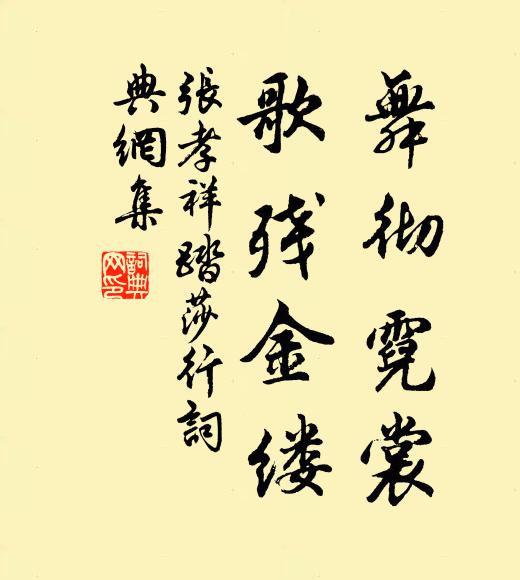 舞彻霓裳
歌残金缕
張孝祥踏莎行詞
典網集
詞典網印